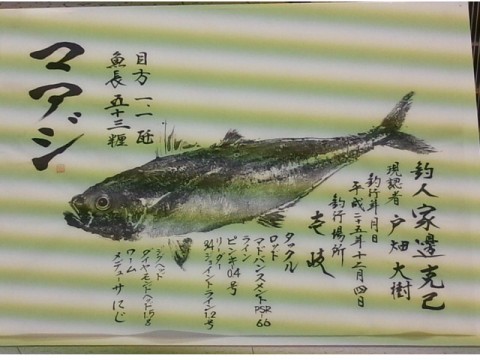 釣人 家邊克己
現認者 戸畑 大樹
釣行年月日
平成二五年十二月四日
釣行場所
壱岐
タックル
ロッド
アドバンスメント PSR-66
ライン
ピンキ 0.4号
リーダー
34ジョイントライン 1.2号
ジグヘッド
ダイヤモンドヘッド 1.5g
ワーム
メデューサ にじ
目方 一.一 瓩
魚長 五十三 糎
マアジ